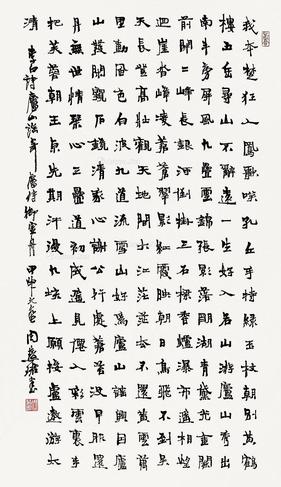 我本楚狂人鳳歌笑孔丘手持綠玉杖朝別黃鶴
樓五岳尋山不辭遠一生好入名山游廬山秀出
南斗旁屏風九疊雲錦張影落明湖青黛光金闕
前開二峰長銀河倒掛三石梁香爐瀑布遙相望
迴崖沓嶂凌蒼蒼翠影紅霞映朝日鳥飛不到吳
天長登高壯觀天地間大江茫茫去不還黃雲萬
里動風色白波九道流雪山好為廬山謠興因廬
山發閑窺石鏡清我心謝公行處蒼苔沒早服還
丹無世情琴心三疊道初成遙見仙人彩雲裏手
把芙蓉朝玉京先期汗漫九垓上願接盧敖遊太
清 李白詩廬山謠寄盧侍御虛舟 甲